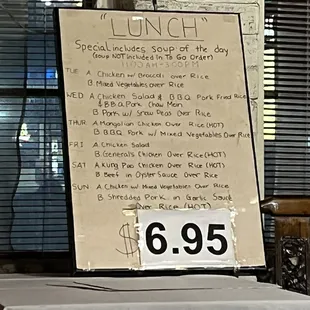 "LUNCH"
Special includes soup of the day
(soup NOT Included In To Go Order)
11:00AM-3:00PM
TUE A Chicken w/ Broccoli over Rice
B Mixed Vegetables over Rice
WED A Chicken Salad & B.B.Q. Pork Fried Rice
& B.B.Q. Pork Chow Mein
B Pork w/ Snow Peas Over Rice
THUR A Mongolian Chicken Over Rice (HOT)
B B.B.Q. Pork w/ Mixed Vegetables Over Rice
FRI A Chicken Salad
B General's Chicken Over Rice (HOT)
SAT A Kung Pao Chicken Over Rice (HOT)
B Beef in Oyster Sauce Over Rice
SUN A Chicken w/ Mixed Vegetables Over Rice
B Shredded Pork in Garlic Sauce
Over Rice (HOT)
$6.95